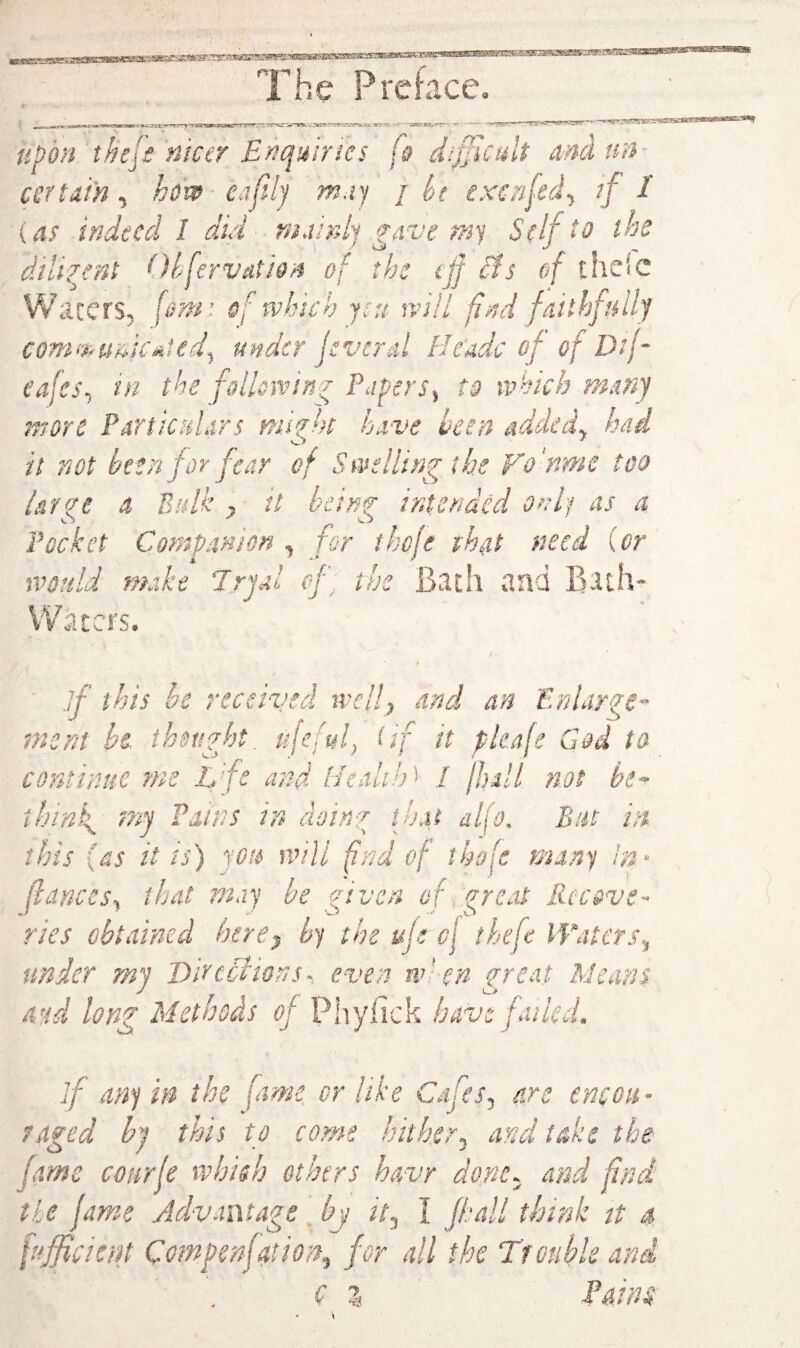 The Preface.
upon theſe nicer Enquiries ſo difficult and un-
certain, how eaſily may I be excuſed, if I
(as indeed I did mainly gave my Self to the
diligent Obſervation of the effects of theſe
Waters, ſome of which you will find faithfully
communicated, under ſeveral Heads of of Diſ-
eaſes, in the following Papers, to which many
more Particulars might have been added, had
it not been for fear of Swelling the Vo'nme too
large a Bulk, it being intended only as a
Pocket Companion, for thoſe that need (or
would make Tryal of, the Bath and Bath-
Waters.
If this be received well, and an Enlarge-
ment be thought uſeful, (if it pleaſe God to
continue me Life and Health) I ſhall not be-
think my Pains in doing that alſo. But in
this (as it is) you will find of thoſe many In-
ſtances, that may be given of great Recove-
ries obtained here, by the uſe of theſe Waters,
under my Directions, even when great Means
and long Methods of Phyſick have failed.
If any in the ſame or like Caſes, are encou-
raged by this to come hither, and take the
ſame courſe which others havr done, and find
the ſame Advantage by it, I ſhall think it a
ſufficient Compenſation, for all the Trouble and
c 2 Pains